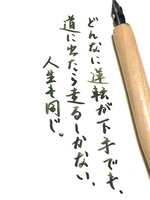 どんなに運転が下手でも、
道に出たら走るしかない。
人生も同じ。